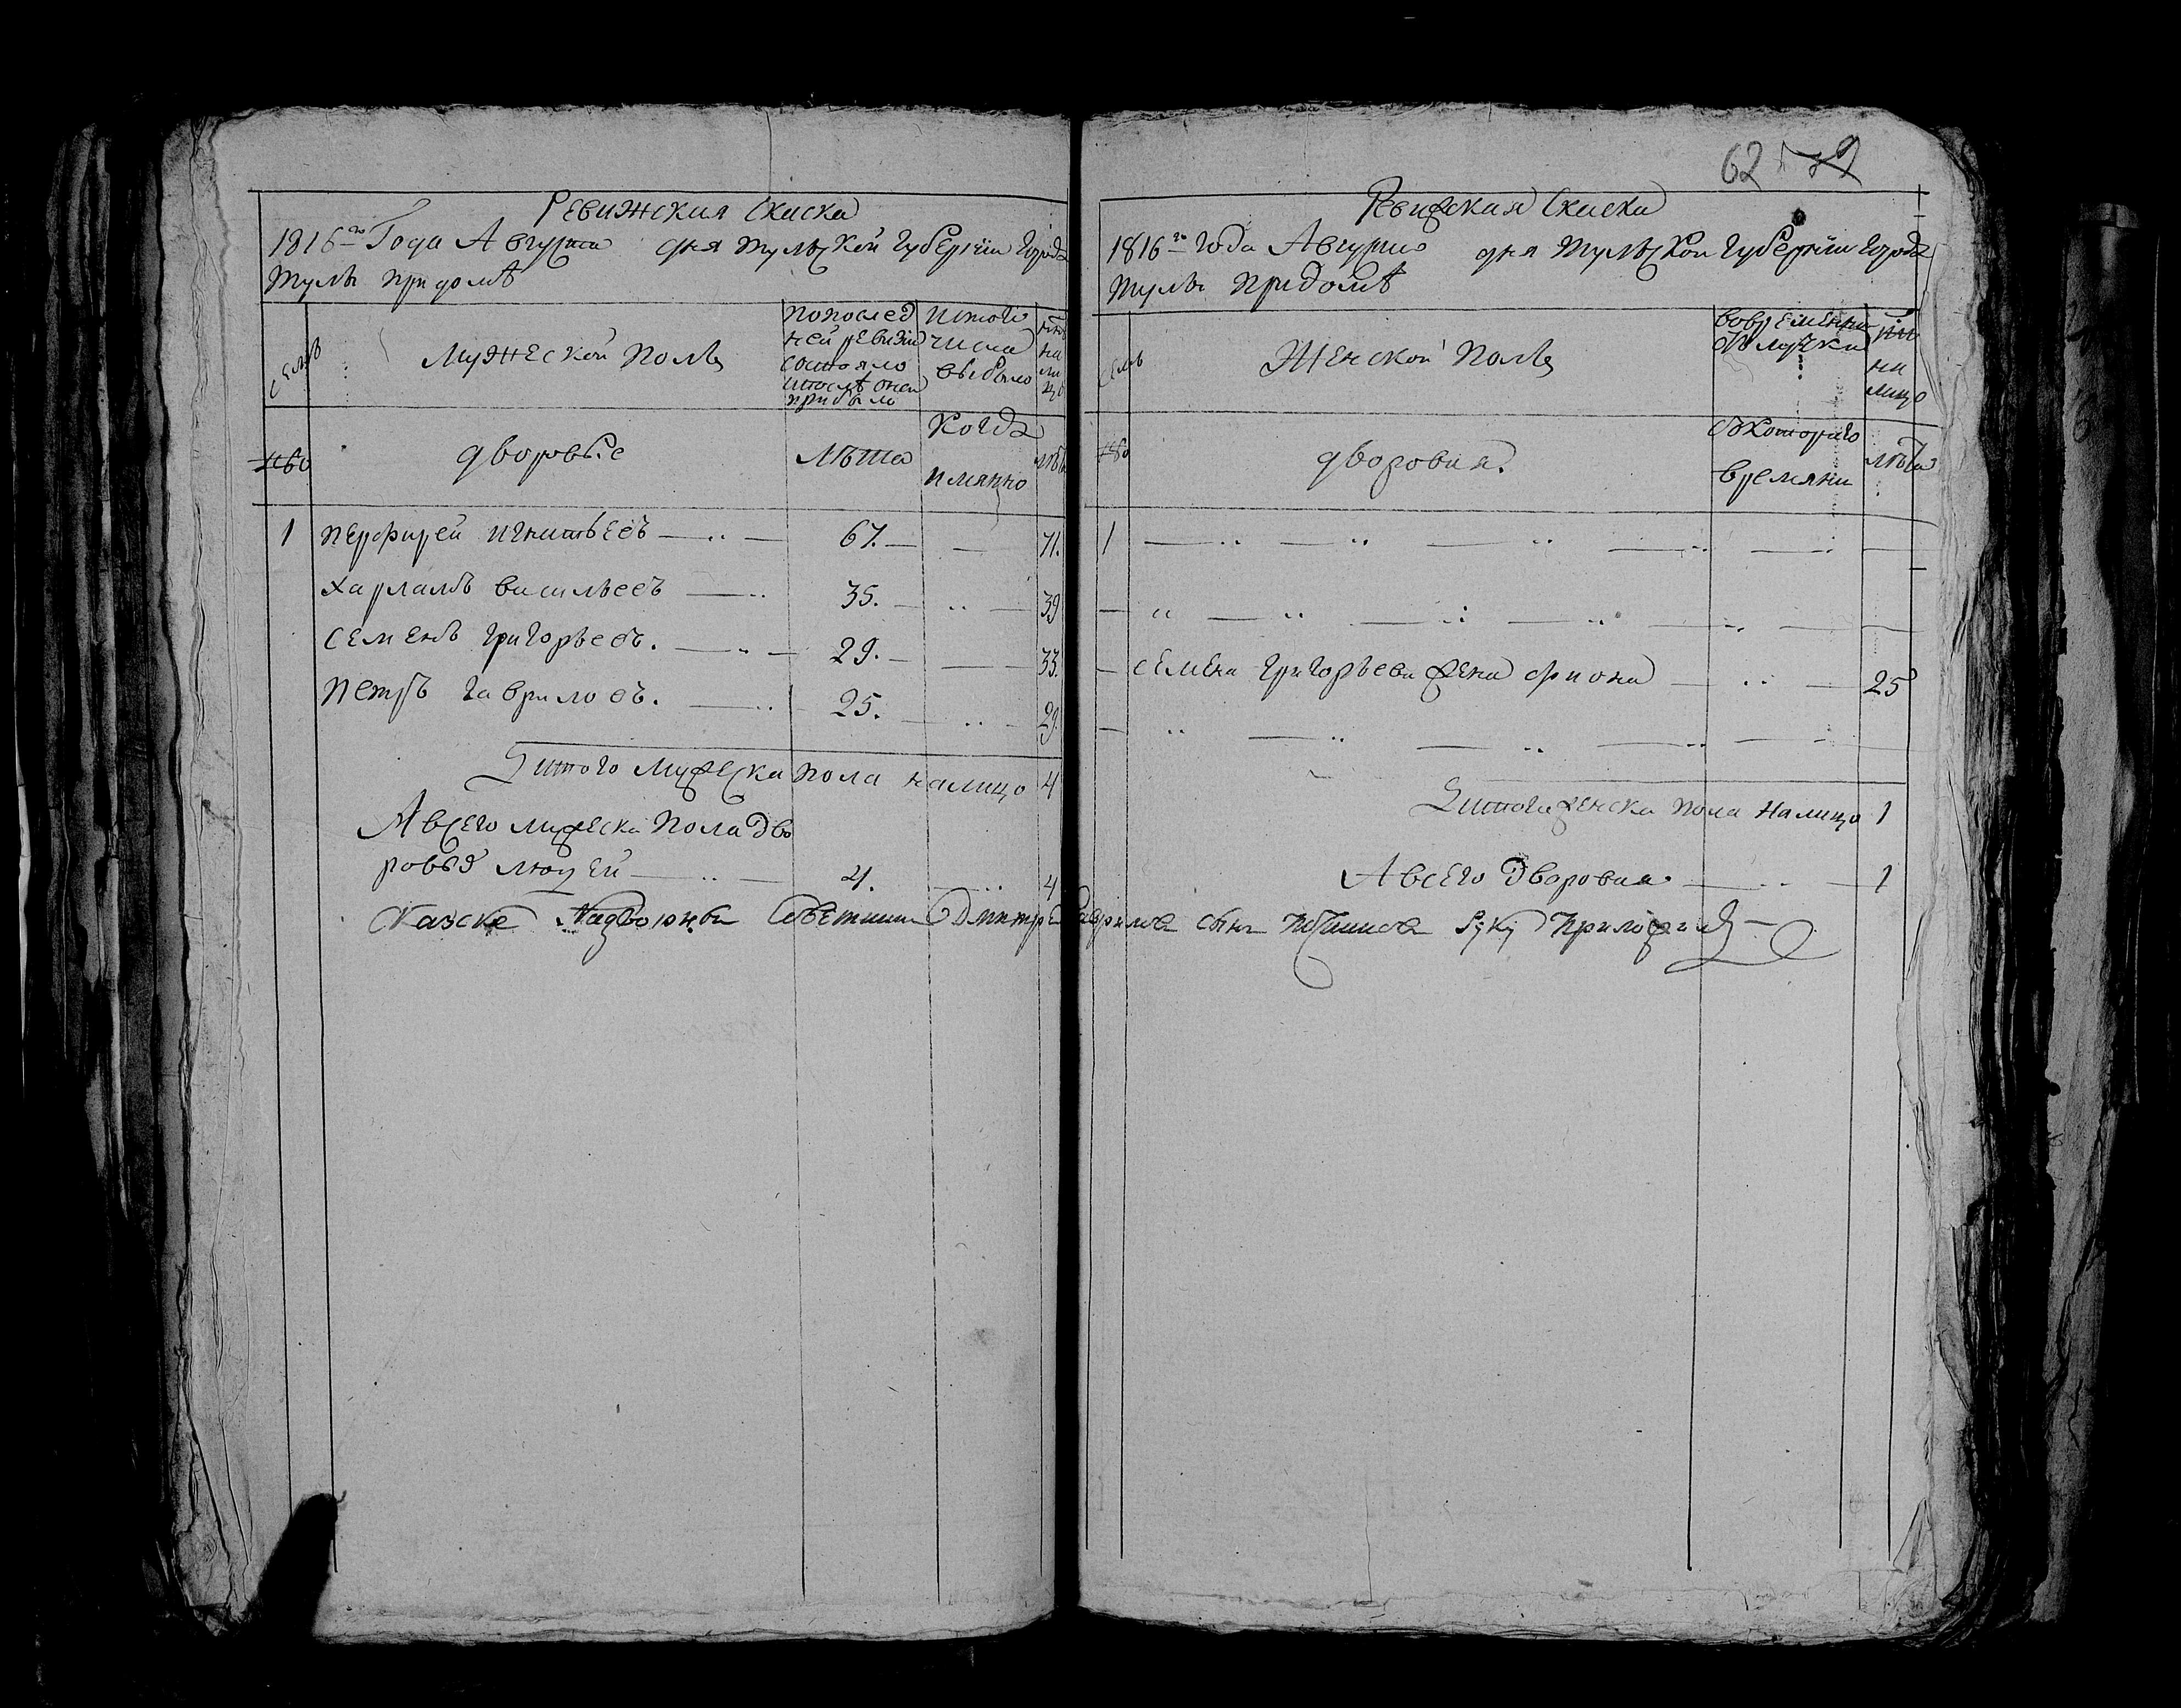 62
Ревижская Скаска
1816го Года Августа дня Тульской Губернiи города
Тулы при домѣ
Семьи
Мужеской полъ
по послед
ней ревизiи
состояло
и послѣ оной
прибыло
из того
числа
выбыло
ны
не
на
ли
цо
дворовые
Лѣта
Когда
имянно
лѣта
1 перфирей игнатьевъ 67. 71.
харламъ васильевъ 35. 39
Семенъ григорьевъ. 29. 33.
петръ гавриловъ. 25. 29.
итого мужеска пола налицо 4
А всего мужеска пола дво
ровыхъ людей 4. 4
Ревижская Скаска
1816го года Августа дня Тульской губернiи города
Тулы при домѣ
Семьи
Женской полъ
во временной
отлучки
на
лицо
дворовыя.
съ котораго
времяни
лѣта
1
Семена григорьева жена фиона 25
итого женска пола налицо 1
А всего дворовыя 1
Скаске Надворнаи Советник Дмитре Гаврилов сынъ руку приложилъ